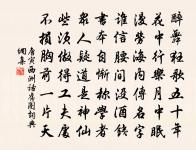 醉舞狂歌五十年
花中行樂月中眠
漫勞海內傳名字
誰信腰間沒酒錢
書本自慚稱學者
眾人疑道是神仙
些須做得工夫處
不損胸前一片天
唐寅西洲話舊圖詞典
網集